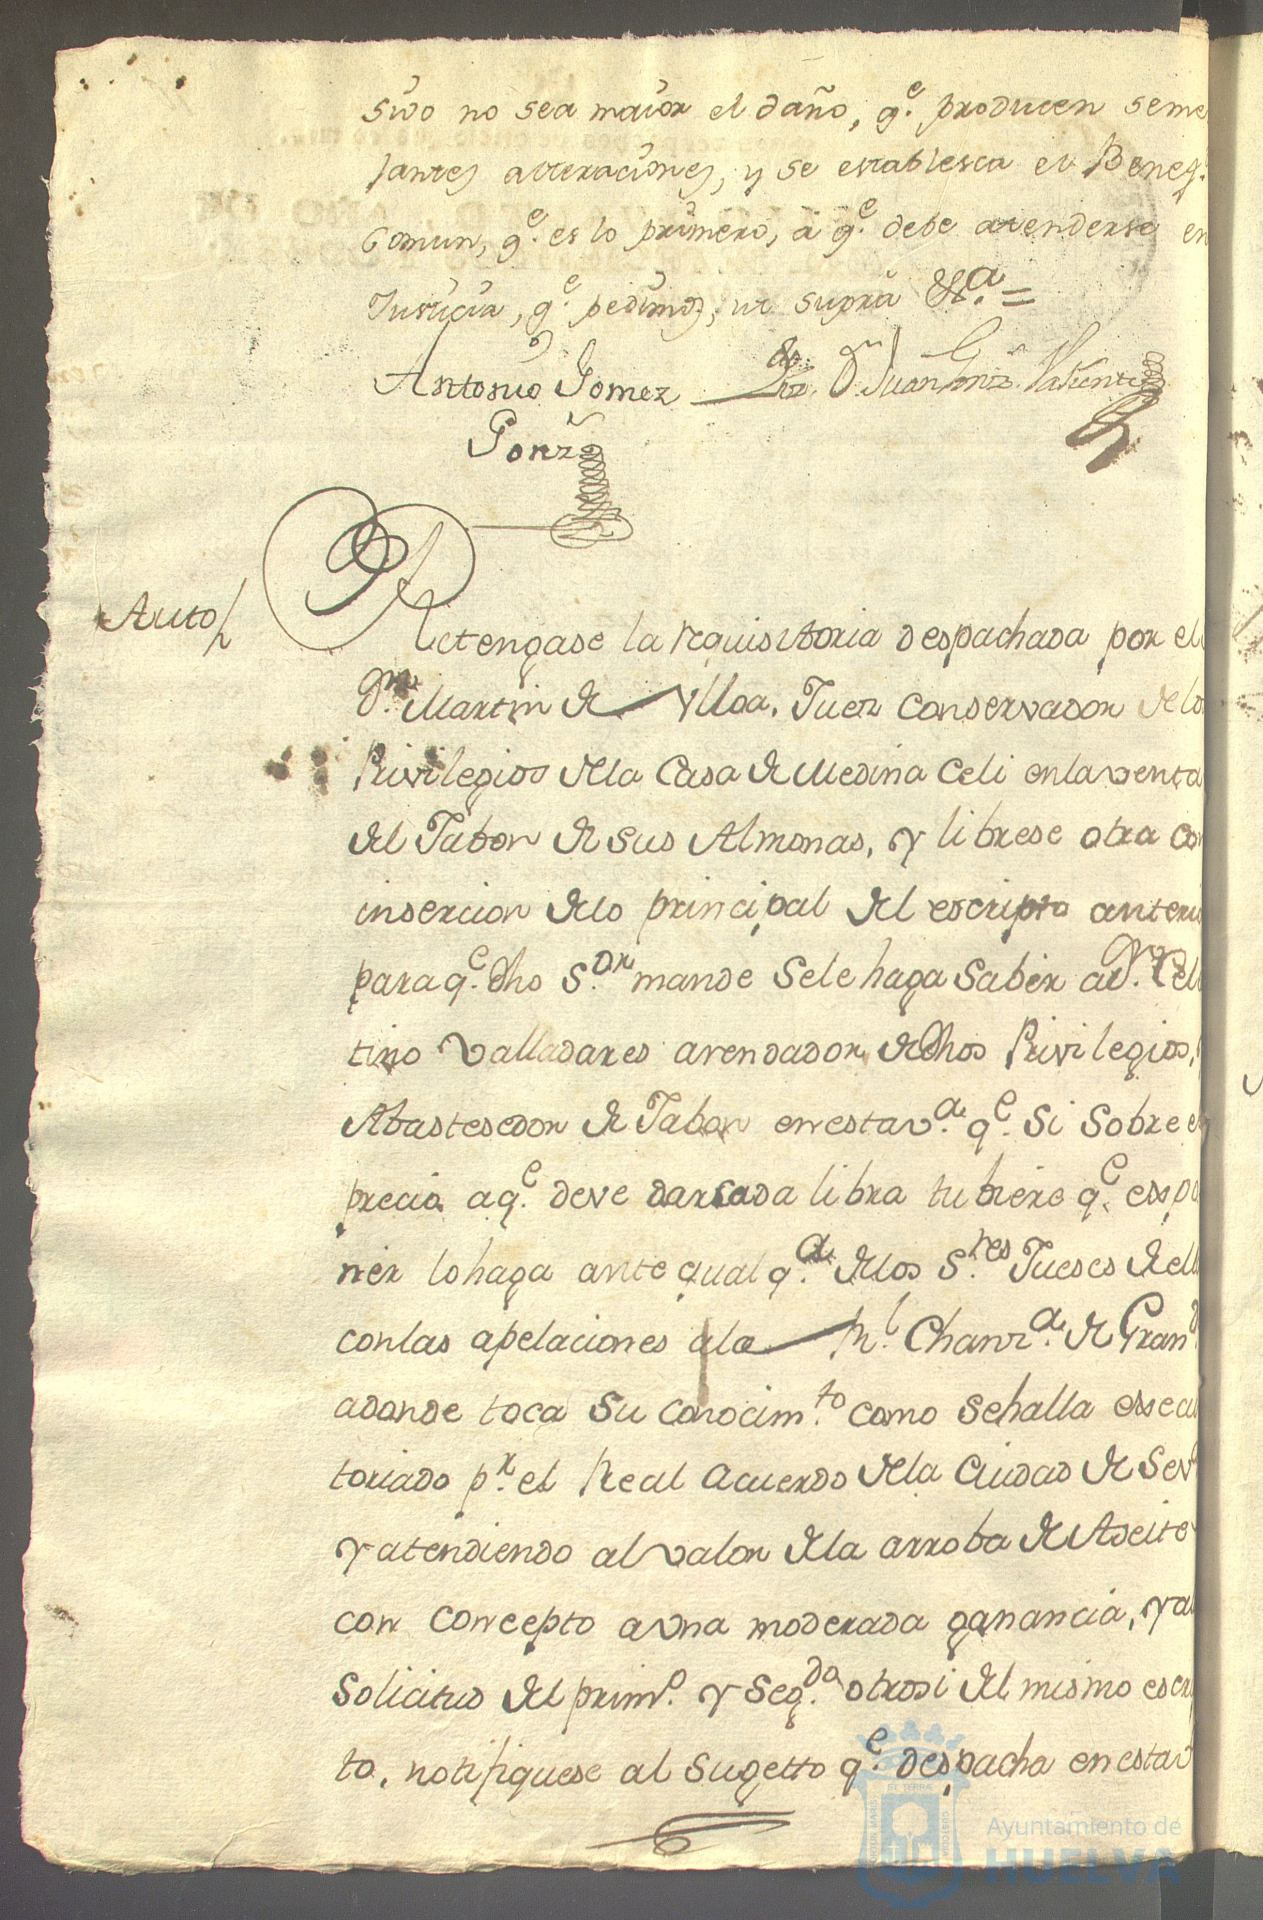 sivo no sea maior el daño, q.e producen seme
jantes alteraciones, y se establesca el Benef.
Comun, q.e es lo primero, â q.e debe atenderse en
Justicia, q.e pedimos, ut supra &.a =
Antonio Gomez Liz. D.n Juan Valiente
Gonz
Auto
Retengase la requisitoria despachada por el
D.n Martin de Ylloa, Juez conservador de los
Privilegios de la Casa de Medina Celi en la venta
del Jabon de sus Almonas, y librese otra con
insercion de lo principal del escripto anteri
para q.e dho S.or mande se le haga saber a D.n Cel
tino Valladares arendador de dhos Privilegios,
Abastesedor de Jabon en esta v.a q.e si sobre e
precio a q.e deve darse cada libra tubiere q.e espo
ner lo haga ante qual q.a de los S.res Jueses de ell
con las apelaciones a la Rl. Chanz.a de Gran
adonde toca su conocim.to como se halla essecu
toriado p.r el Real Acuerdo de la Ciudad de Sev
y atendiendo al valor de la arroba de Aseite
con concepto a una moderada ganancia, y al
solicitud del prim.o y seg.do otrosi del mismo escri
to, notifiquese al sugetto q.e despacha en esta v
Ayuntamiento de
HUELVA